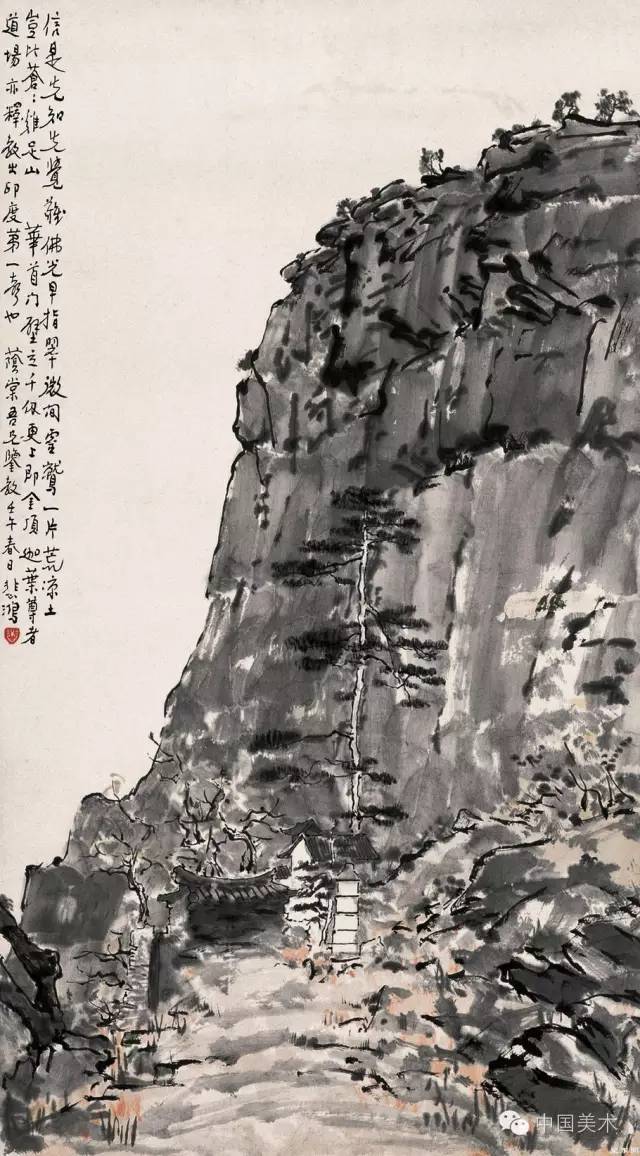 信是先知先覺難佛光早指翠微間靈鷲一片荒凉土
豈比蒼〻雞足山　華首门壁立千仞更上即金頂迦葉尊者
道場亦釋教出印度第一聲也　蔭棠吾兄鑒教壬午春日悲鴻
中国美术